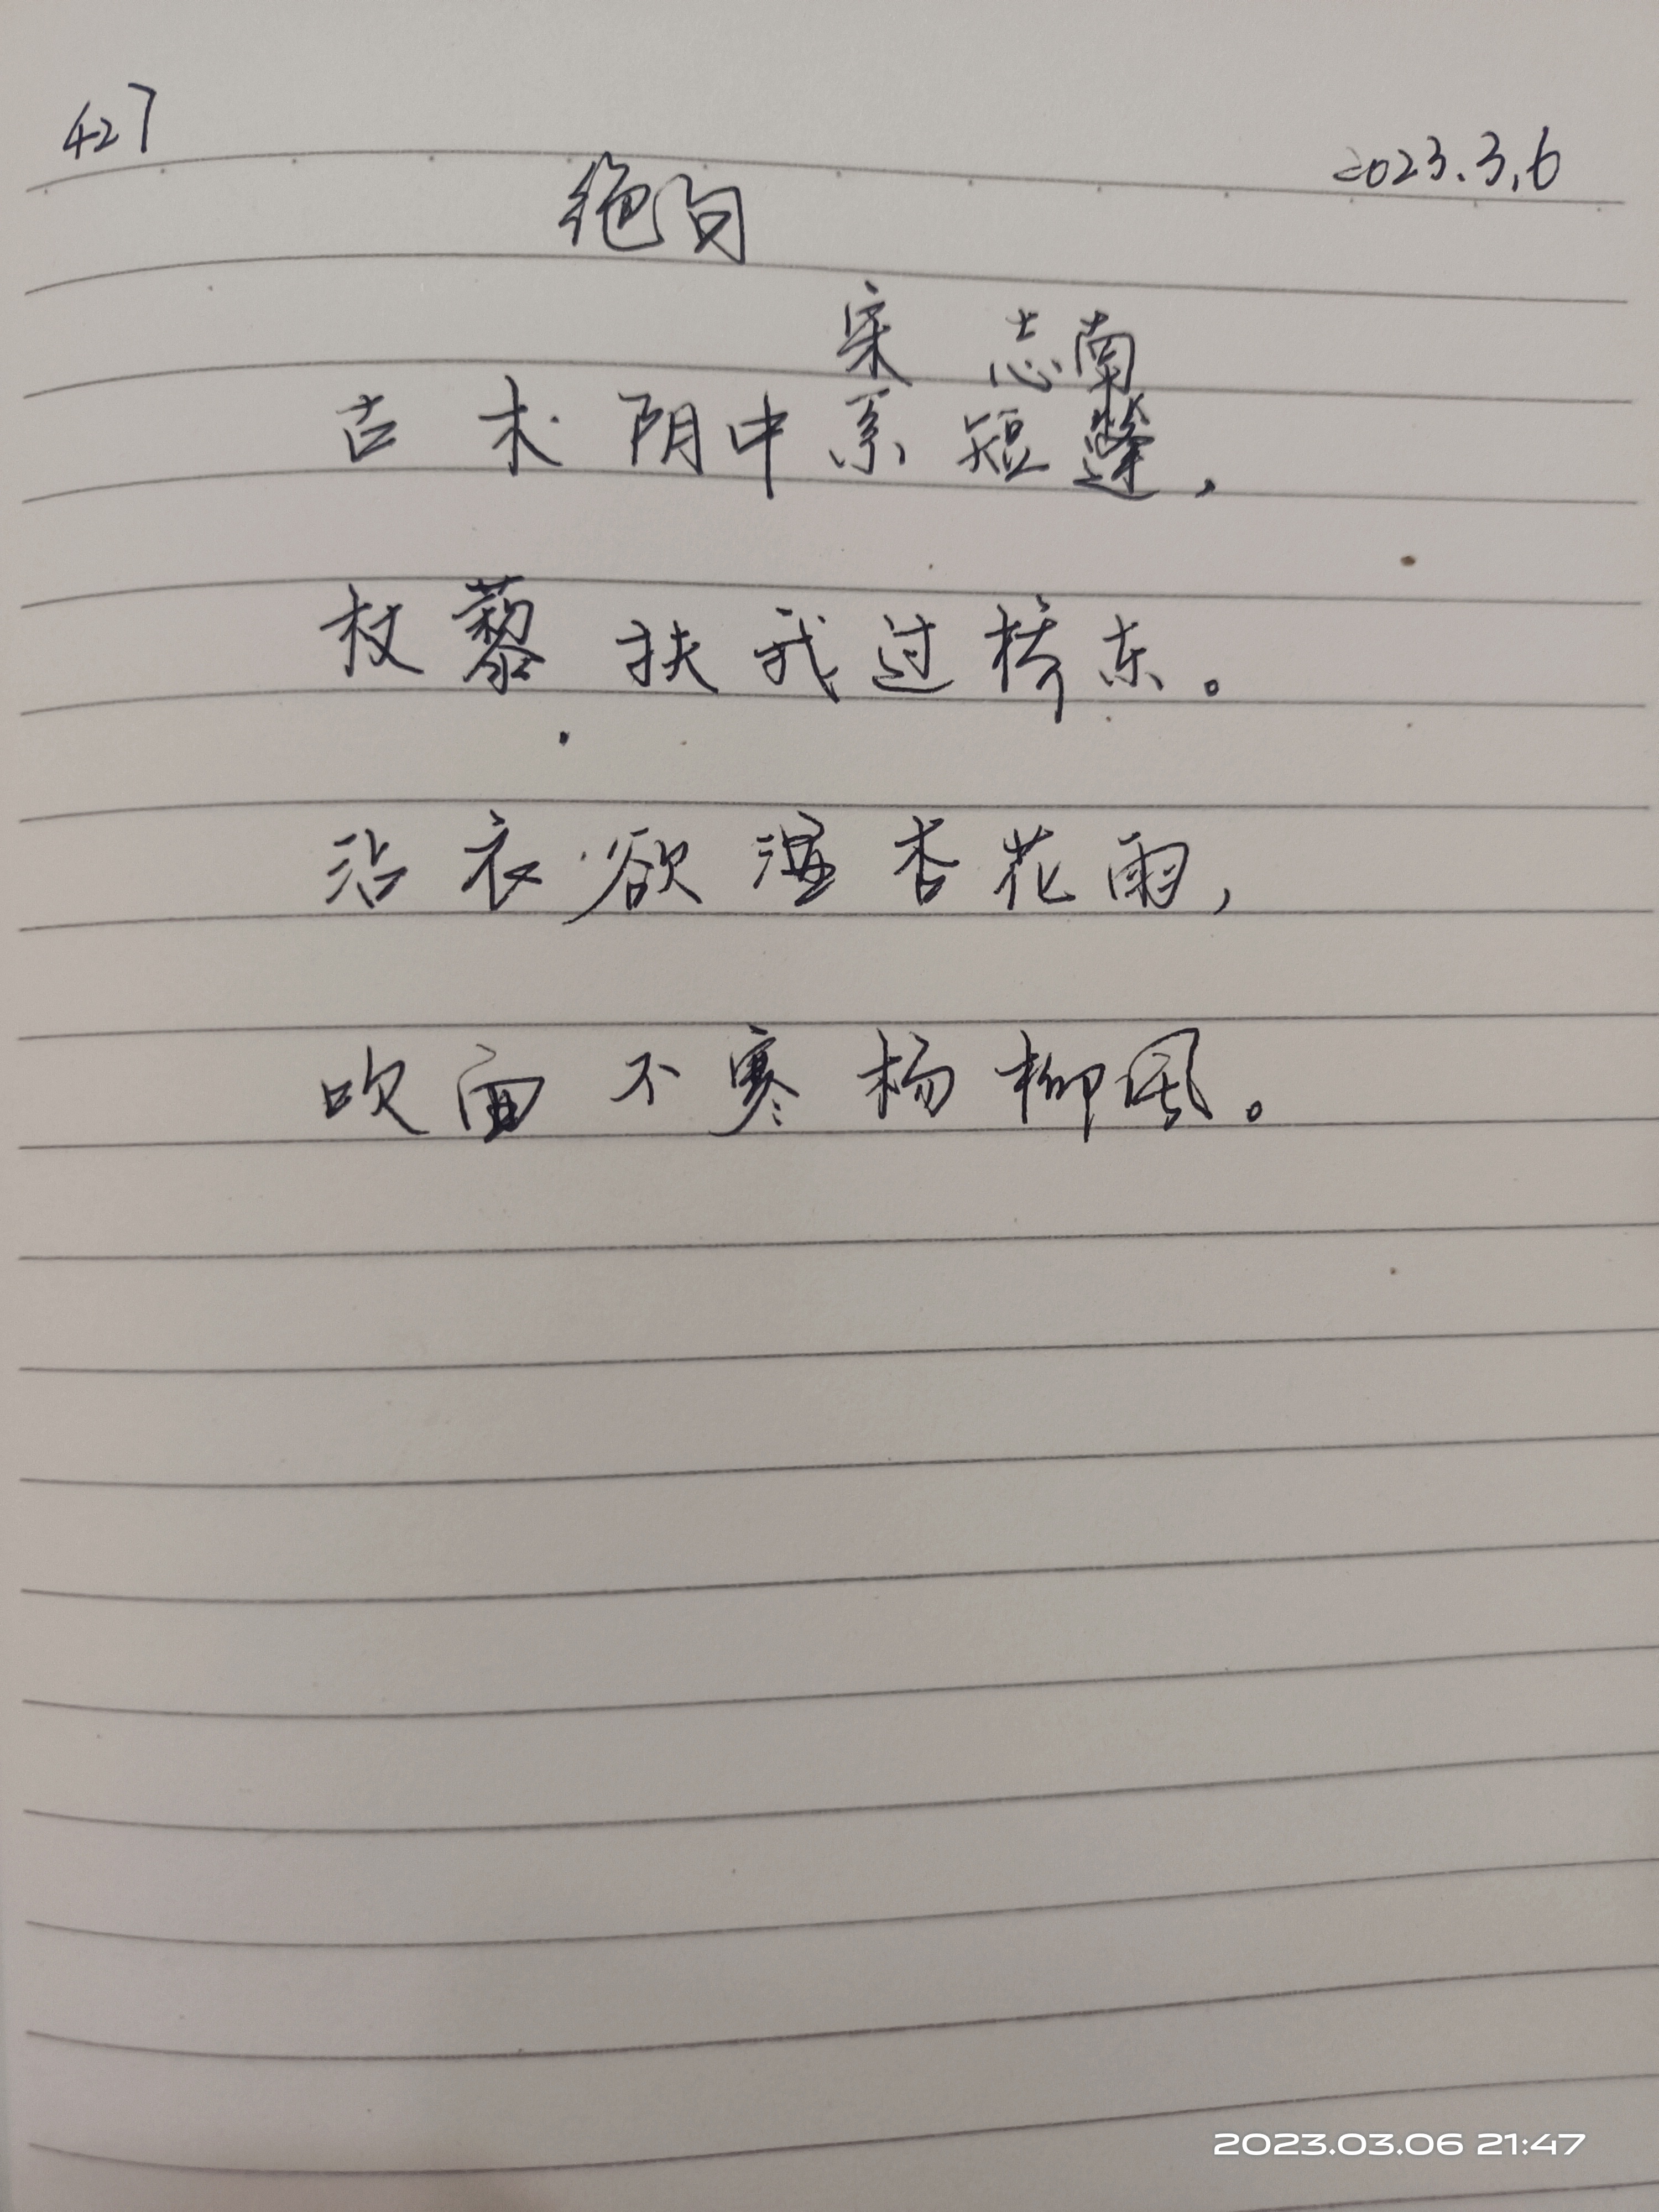 427
2023.3.6
绝句
宋 志南
古木阴中系短蓬,
杖藜扶我过桥东。
沾衣欲湿杏花雨,
吹面不寒杨柳风。
2023.03.06 21:47